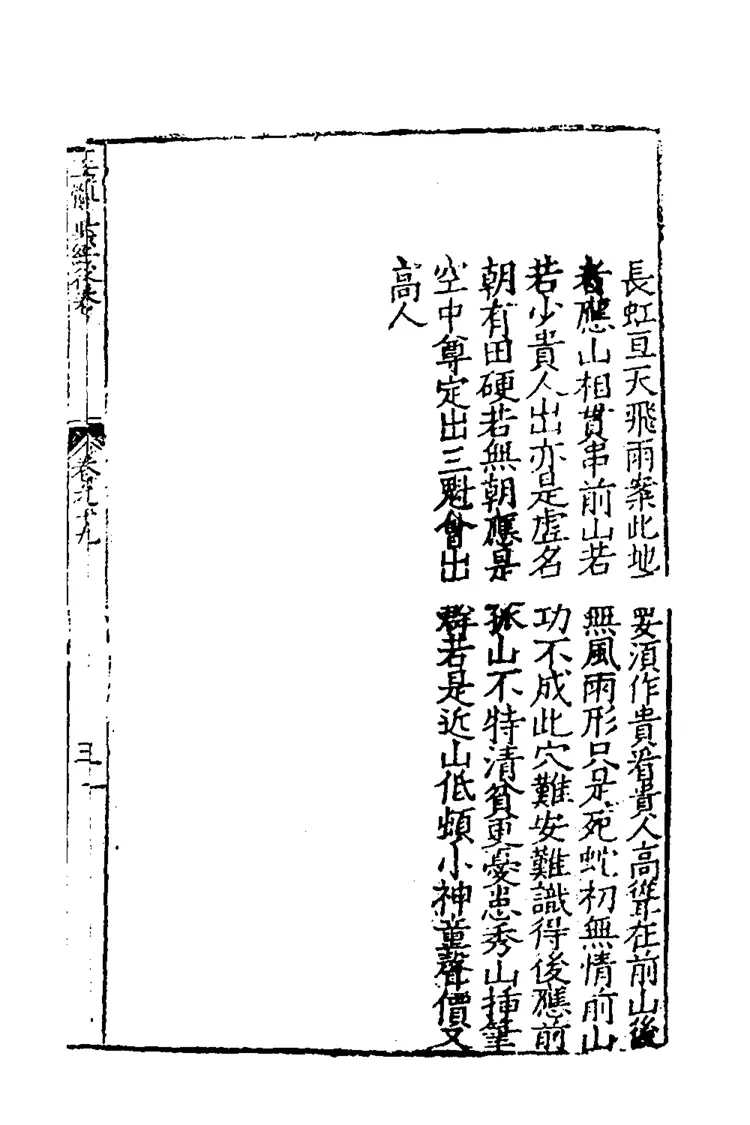 長虹亘天飛雨案此地要須作貴看貴人高聳在前山後
者應山相貫串前山若無風雨形只是死蛇初無情前山
若少貴人出亦是虛名功不成此穴難安難識得後應前
朝有田硬若無朝應是孤山不特清貧更憂患秀山挿筆
空中尊定出三魁會出群若是近山低頻小神童聲價又
高人
後卷
卷九十九
三